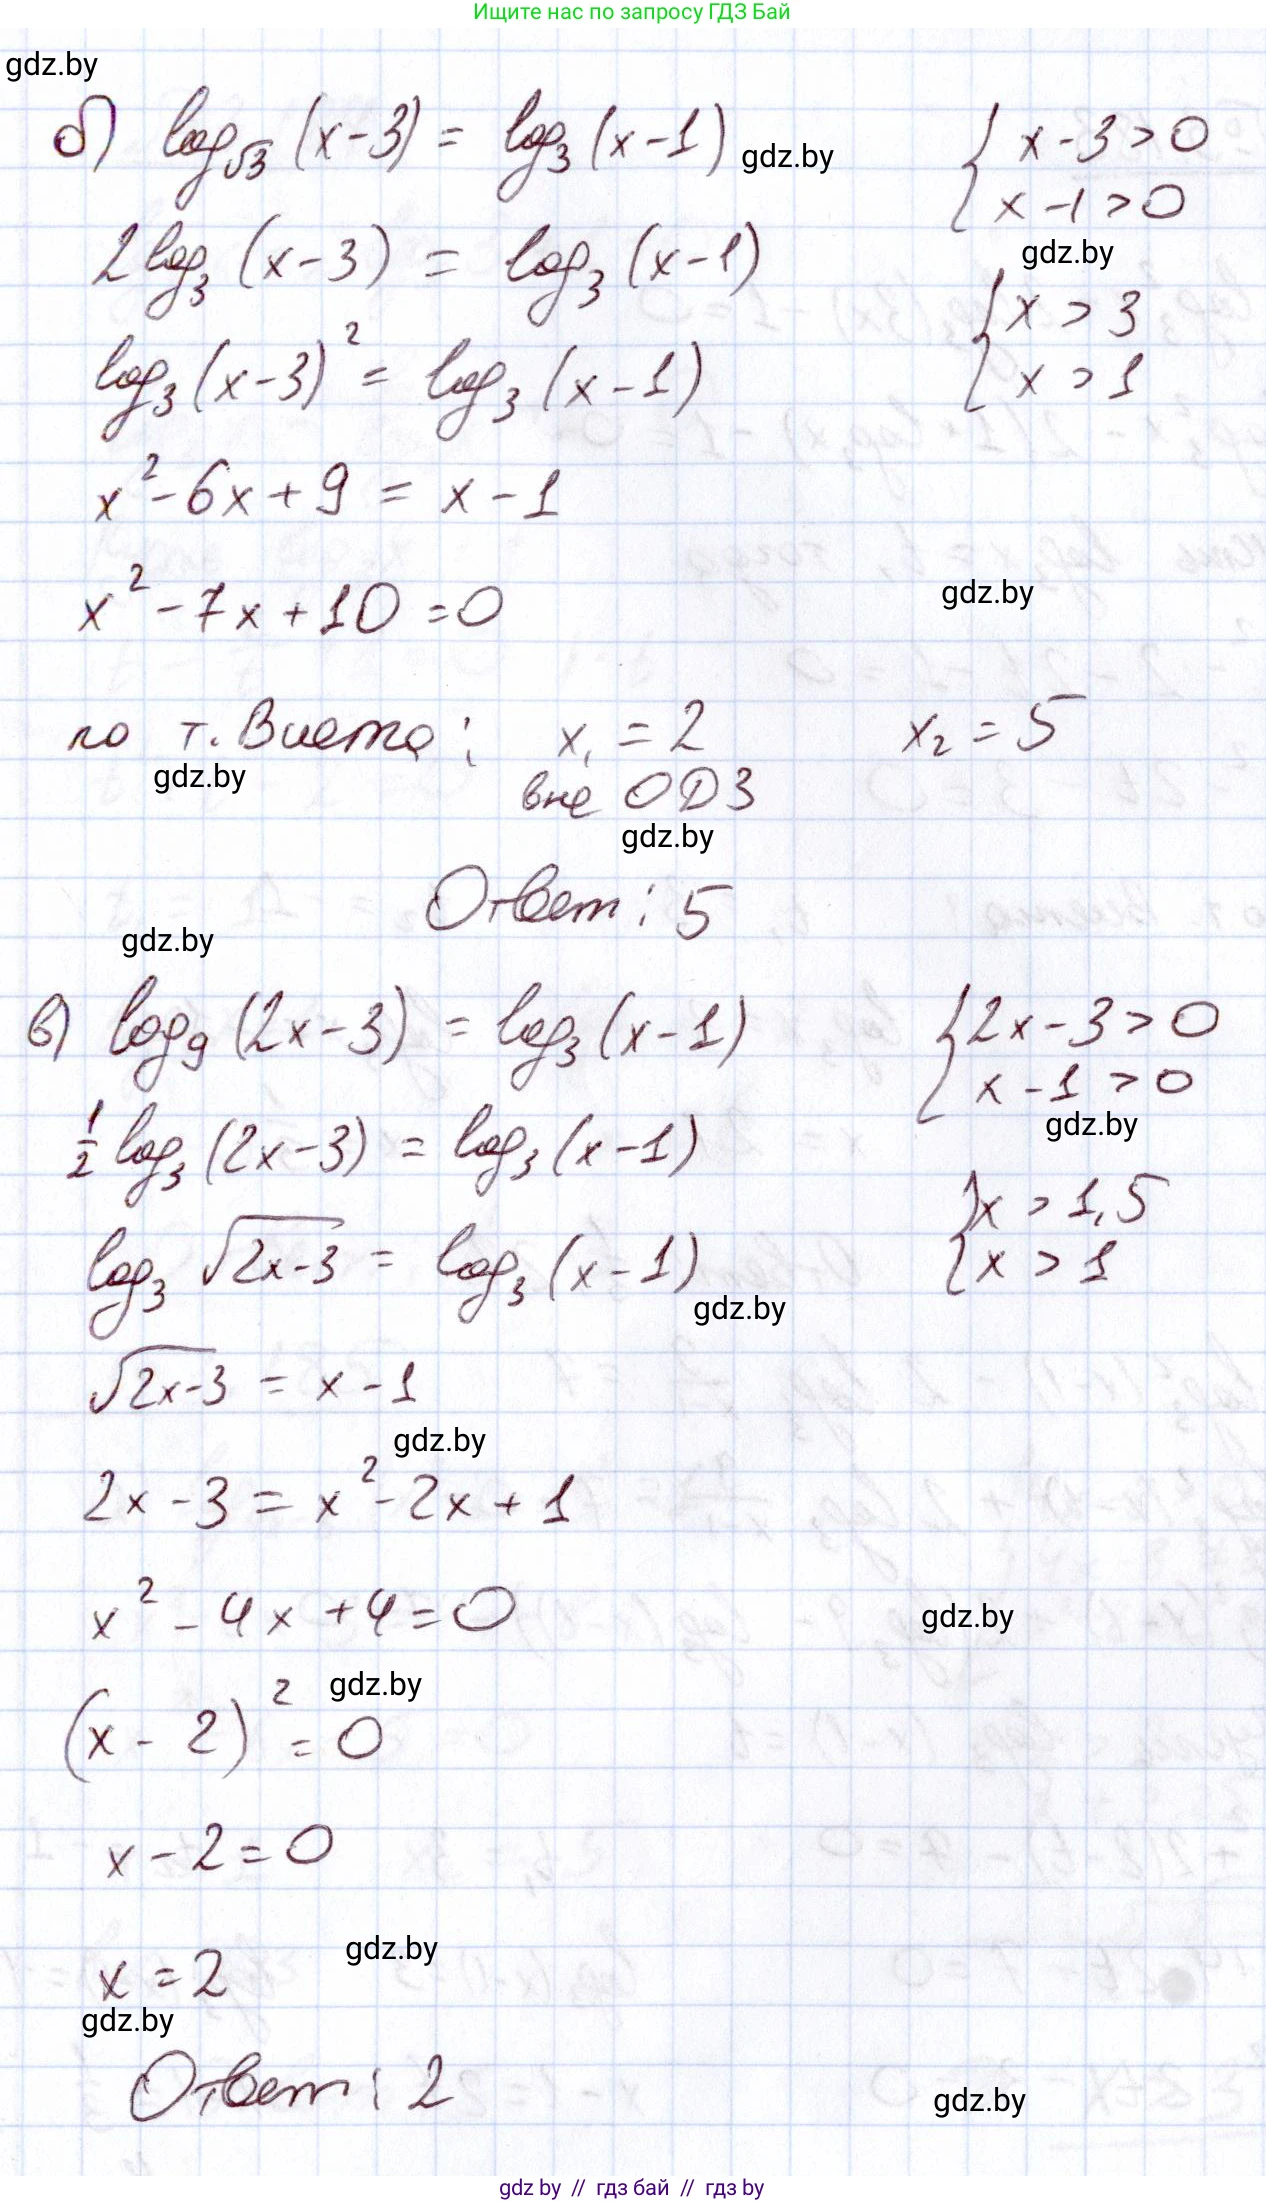 Ищите нас по запросу ГДЗ Бай
gdz.by
б) log_√3 (x-3) = log_3 (x-1) gdz.by { x-3>0
x-1>0
2log_3 (x-3) = log_3 (x-1) gdz.by
{ x > 3
log_3 (x-3)² = log_3 (x-1) x > 1
x² - 6x + 9 = x - 1
x² - 7x + 10 = 0 gdz.by
по т. Виета: x₁ = 2 x₂ = 5
gdz.by вне ОДЗ
gdz.by
Ответ: 5
gdz.by
в) log_9 (2x-3) = log_3 (x-1) { 2x-3>0
x-1>0
gdz.by
1/2 log_3 (2x-3) = log_3 (x-1)
{ x > 1,5
log_3 √(2x-3) = log_3 (x-1) x > 1
gdz.by
√(2x-3) = x - 1
gdz.by
2x - 3 = x² - 2x + 1
x² - 4x + 4 = 0 gdz.by
gdz.by
(x - 2)² = 0
x - 2 = 0
gdz.by
x = 2
gdz.by
Ответ: 2 gdz.by
gdz by // гдз бай // гдз by